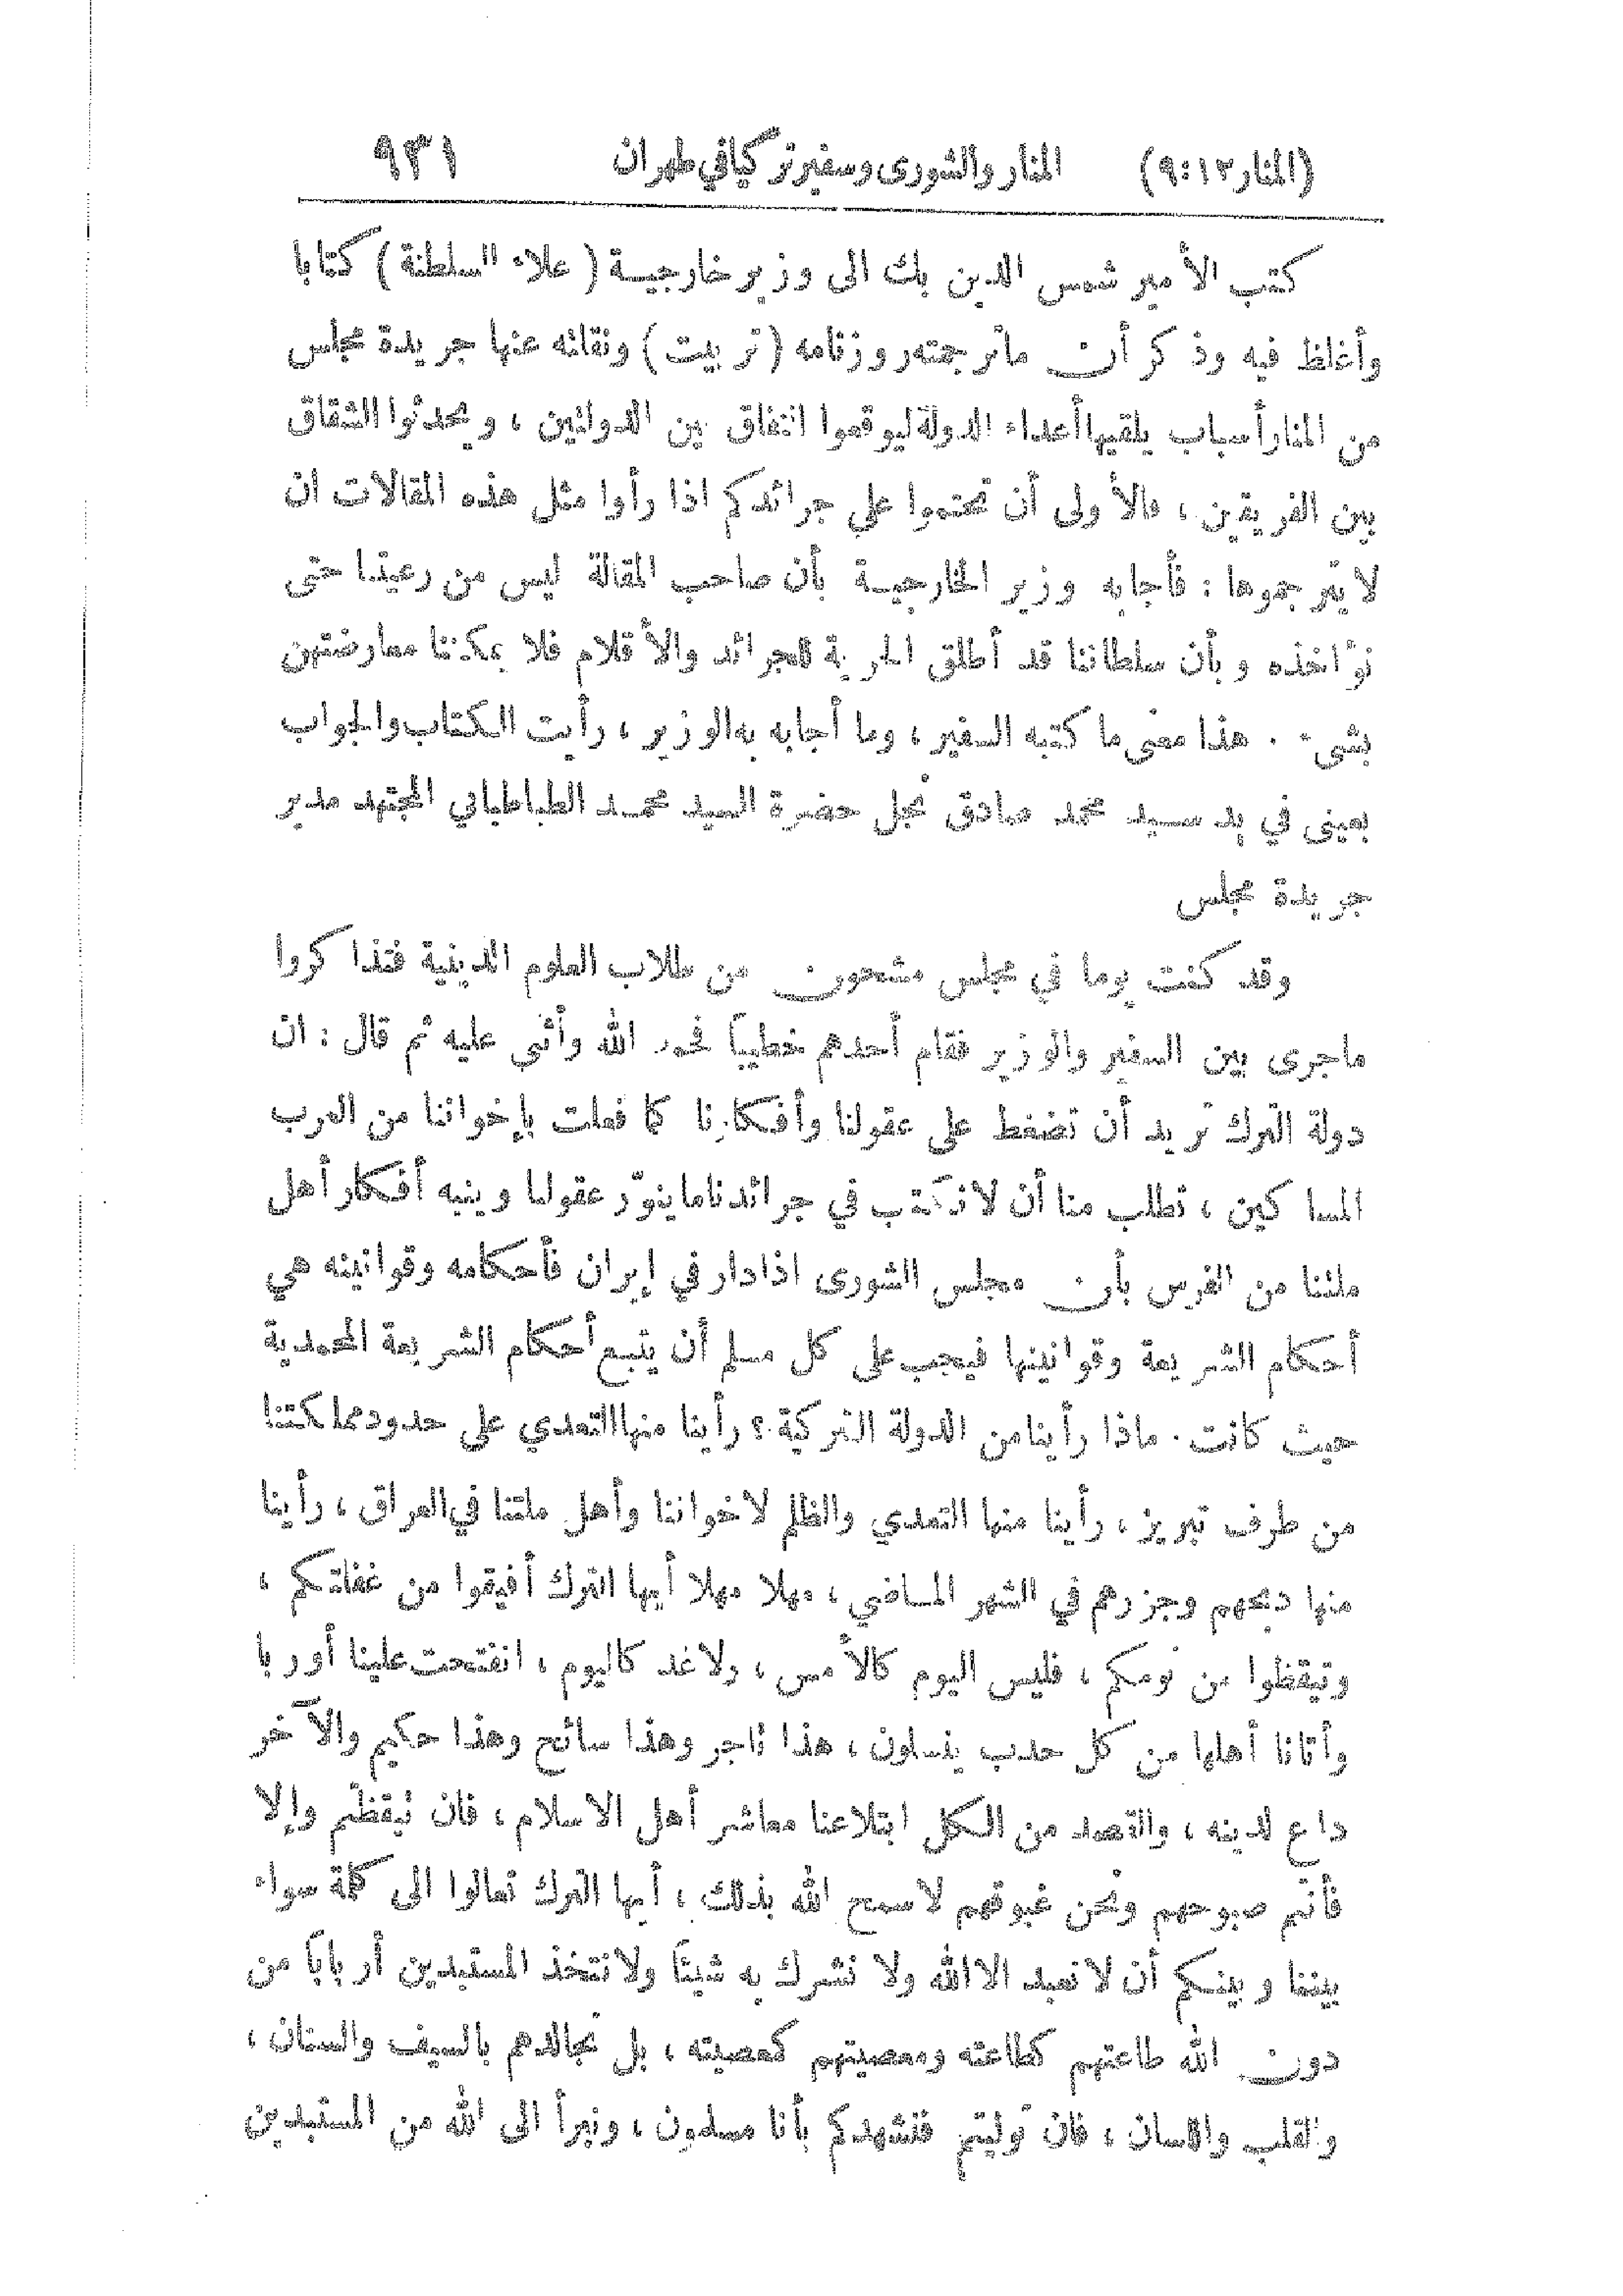 (المنار ١٢:٩) المنار والشورى وسفير تركيا في طهران ٩٣١
كتب الأمير شمس الدين بك الى وزير خارجية ( علاء السلطنة ) كتابا
وأغلظ فيه وذكر أن ماترجمته روزنامه ( تربيت ) ونقلته عنها جريدة مجلس
من المنار أسباب يلقيها أعداء الدولة ليوقعوا اتفاق بين الدولتين ، ويحدثوا الشقاق
بين الفريقين ، فالأولى أن تحتموا على جرائدكم اذا رأوا مثل هذه المقالات ان
لا يترجموها : فأجابه وزير الخارجية بأن صاحب المقالة ليس من رعيتنا حتى
نؤاخذه وبأن سلطاننا قد أطلق الحرية للجرائد والأقلام فلا يمكننا معارضتهن
بشيء . هذا معنى ما كتبه السفير ، وما أجابه به الوزير ، رأيت الكتاب والجواب
بعيني في يد سيد محمد صادق نجل حضرة السيد محمد الطباطبائي المجتهد مدير
جريدة مجلس
وقد كنت يوما في مجلس مشحون من طلاب العلوم الدينية فتذاكروا
ماجرى بين السفير والوزير فقام أحدهم خطيباً فحمد الله وأثنى عليه ثم قال : ان
دولة الترك تريد أن تضغط على عقولنا وأفكارنا كما فعلت بإخواننا من العرب
المساكين ، تطلب منا أن لا نكتب في جرائدنا ما ينوّر عقولنا وينبه أفكار أهل
ملتنا من الفرس بأن مجلس الشورى اذا دار في إيران فأحكامه وقوانينه هي
أحكام الشريعة وقوانينها فيجب على كل مسلم أن يتبع أحكام الشريعة المحمدية
حيث كانت . ماذا رأينا من الدولة التركية ؟ رأينا منها التعدي على حدود مملكتنا
من طرف تبريز ، رأينا منها التعدي والظلم لاخواننا وأهل ملتنا في العراق ، رأينا
منها ذبحهم وجزرهم في الشهر الماضي ، مهلا مهلا أيها الترك أفيقوا من غفلتكم ،
وتيقظوا من نومكم ، فليس اليوم كالأمس ، ولا غد كاليوم ، انفتحت علينا أوربا
وأتانا أهلها من كل حدب ينسلون ، هذا تاجر وهذا سائح وهذا حكيم والآخر
داع لدينه ، والقصد من الكل ابتلاعنا معاشر أهل الاسلام ، فان تيقظتم وإلا
فأنتم صبوحهم ونحن غبوقهم لا سمح الله بذلك ، أيها الترك تعالوا الى كلمة سواء
بيننا وبينكم أن لا نعبد الا الله ولا نشرك به شيئاً ولا نتخذ المستبدين أرباباً من
دون الله طاعتهم كطاعته ومعصيتهم كمعصيته ، بل نجالدهم بالسيف والسنان ،
والقلب واللسان ، فان توليتم فنشهدكم بأنا مسلمون ، ونبرأ الى الله من المستبدين